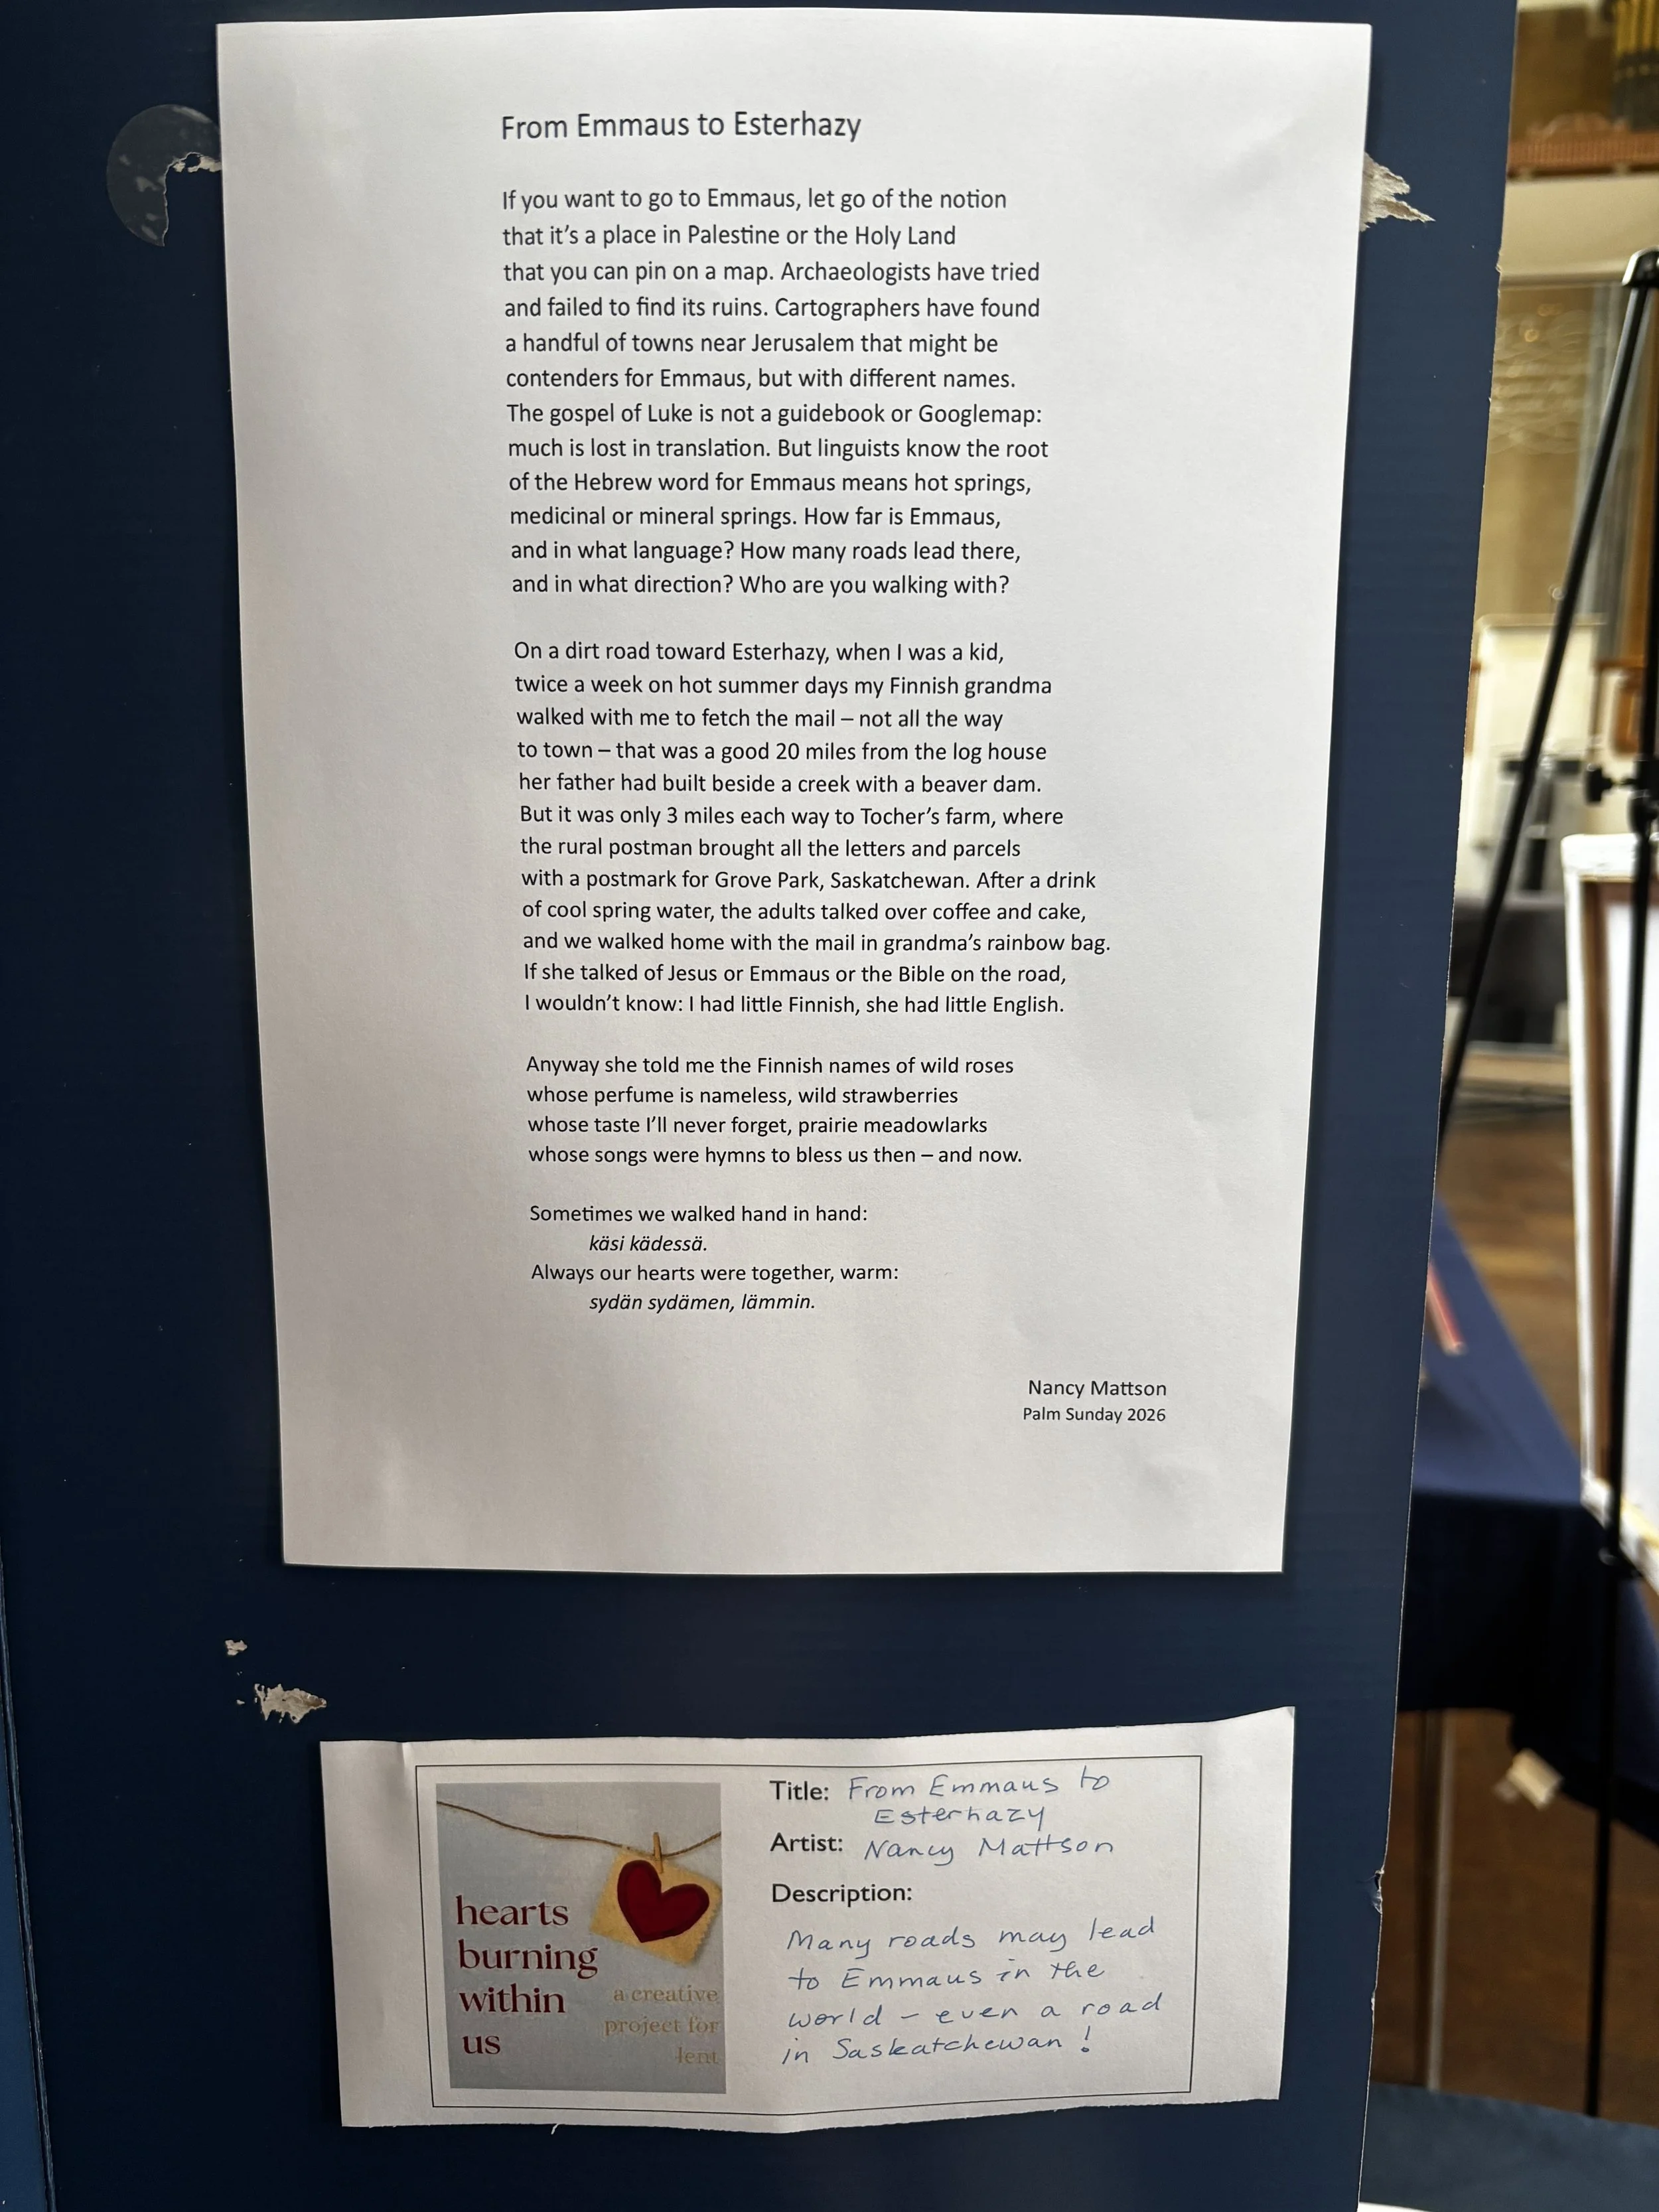 From Emmaus to Esterhazy
If you want to go to Emmaus, let go of the notion
that it's a place in Palestine or the Holy Land
that you can pin on a map. Archaeologists have tried
and failed to find its ruins. Cartographers have found
a handful of towns near Jerusalem that might be
contenders for Emmaus, but with different names.
The gospel of Luke is not a guidebook or Googlemap:
much is lost in translation. But linguists know the root
of the Hebrew word for Emmaus means hot springs,
medicinal or mineral springs. How far is Emmaus,
and in what language? How many roads lead there,
and in what direction? Who are you walking with?
On a dirt road toward Esterhazy, when I was a kid,
twice a week on hot summer days my Finnish grandma
walked with me to fetch the mail – not all the way
to town – that was a good 20 miles from the log house
her father had built beside a creek with a beaver dam.
But it was only 3 miles each way to Tocher's farm, where
the rural postman brought all the letters and parcels
with a postmark for Grove Park, Saskatchewan. After a drink
of cool spring water, the adults talked over coffee and cake,
and we walked home with the mail in grandma's rainbow bag.
If she talked of Jesus or Emmaus or the Bible on the road,
I wouldn't know: I had little Finnish, she had little English.
Anyway she told me the Finnish names of wild roses
whose perfume is nameless, wild strawberries
whose taste I'll never forget, prairie meadowlarks
whose songs were hymns to bless us then – and now.
Sometimes we walked hand in hand:
käsi kädessä.
Always our hearts were together, warm:
sydän sydämen, lämmin.
Nancy Mattson
Palm Sunday 2026
hearts
burning
within
us
a creative
project for
lent
Title: From Emmaus to
Esterhazy
Artist: Nancy Mattson
Description:
Many roads may lead
to Emmaus in the
world – even a road
in Saskatchewan!